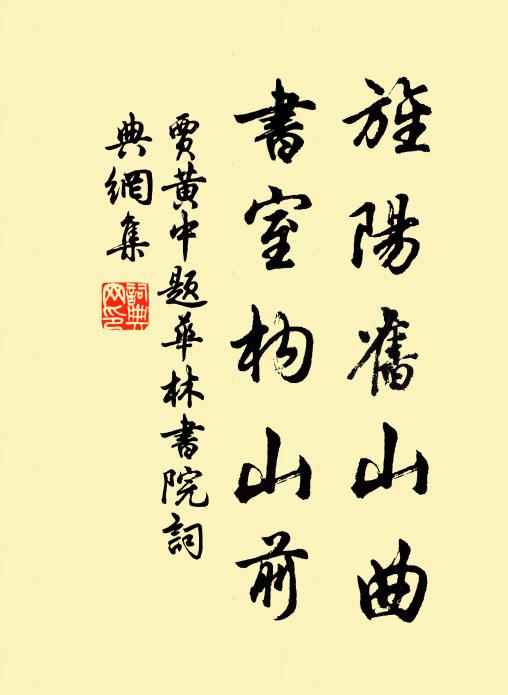 旌陽舊山曲
書室构山前
賈黃中題華林書院詞
典網集
詞典
网印